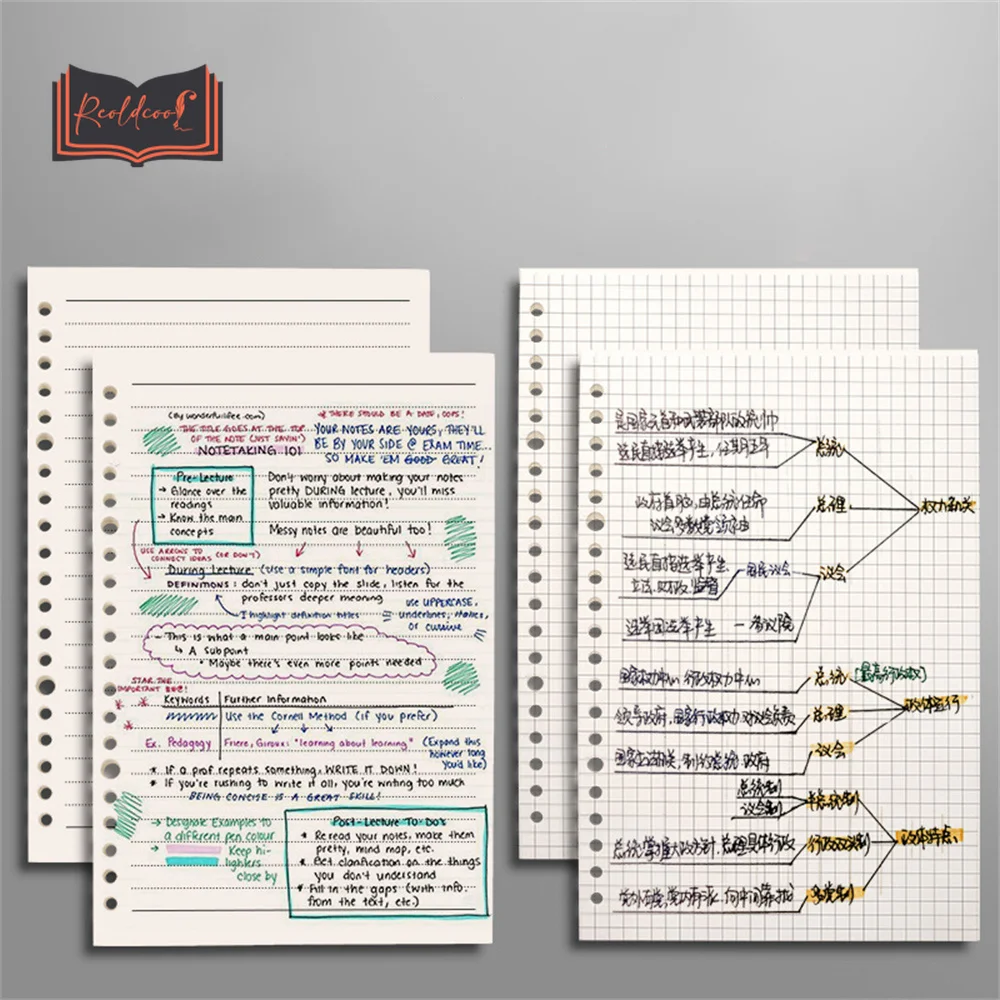 Reoldcool
(By wonderfullifee.com)
* THERE SHOULD BE A DATE, OOPS!
THE TITLE GOES AT THE TOP
OF THE NOTE (JUST SAYIN')
NOTETAKING 101
YOUR NOTES ARE YOURS, THEY'LL
BE BY YOUR SIDE @ EXAM TIME...
SO MAKE 'EM GOOD GREAT!
Pre-Lecture
→ Glance over the
readings
→ Know the main
concepts
Don't worry about making your notes
pretty DURING lecture, you'll miss
valuable information!
Messy notes are beautiful too!
USE ARROWS TO
CONNECT IDEAS (OR DON'T)
During Lecture (Use a simple font for headers)
DEFINITIONS: don't just copy the slide, listen for the
professors deeper meaning
I highlight definition titles
use UPPERCASE,
underlines, italics,
or cursive
- This is what a main point looks like
↳ A Subpoint
• Maybe there's even more points needed
STAR THE
IMPORTANT
Keywords
Further Information
Use the Cornell Method (if you prefer)
Ex. Pedagogy
Friere, Giroux: "learning about learning"
(Expand this
however long
you'd like)
* If a prof repeats something, WRITE IT DOWN!
* If you're rushing to write it all, you're writing too much
BEING CONCISE IS A GREAT SKILL!
→ Designate Examples to
a different pen colour
→ Keep hi-
lighters
close by
Post-Lecture To Do's
* Re read your notes, make them
pretty, mind map, etc.
* Get clarification on the things
you don't understand
* Fill in the gaps (with info.
from the text, etc.)
选民直接选举产生,任期5年
总统
政府首脑,由总统任命
总理
权力机关
选民直接选举产生
立法、财政、监督
国民议会
议会
选举团选举产生 — 参议院
国家权力中心 行政权力中心
总统
[最高行政权]
领导政府,国家行政权力,对议会负责
总理
政体运行
议会
总统制
议会制
半总统制
总统掌握大政方针,总理具体行政
政体特点
多党制